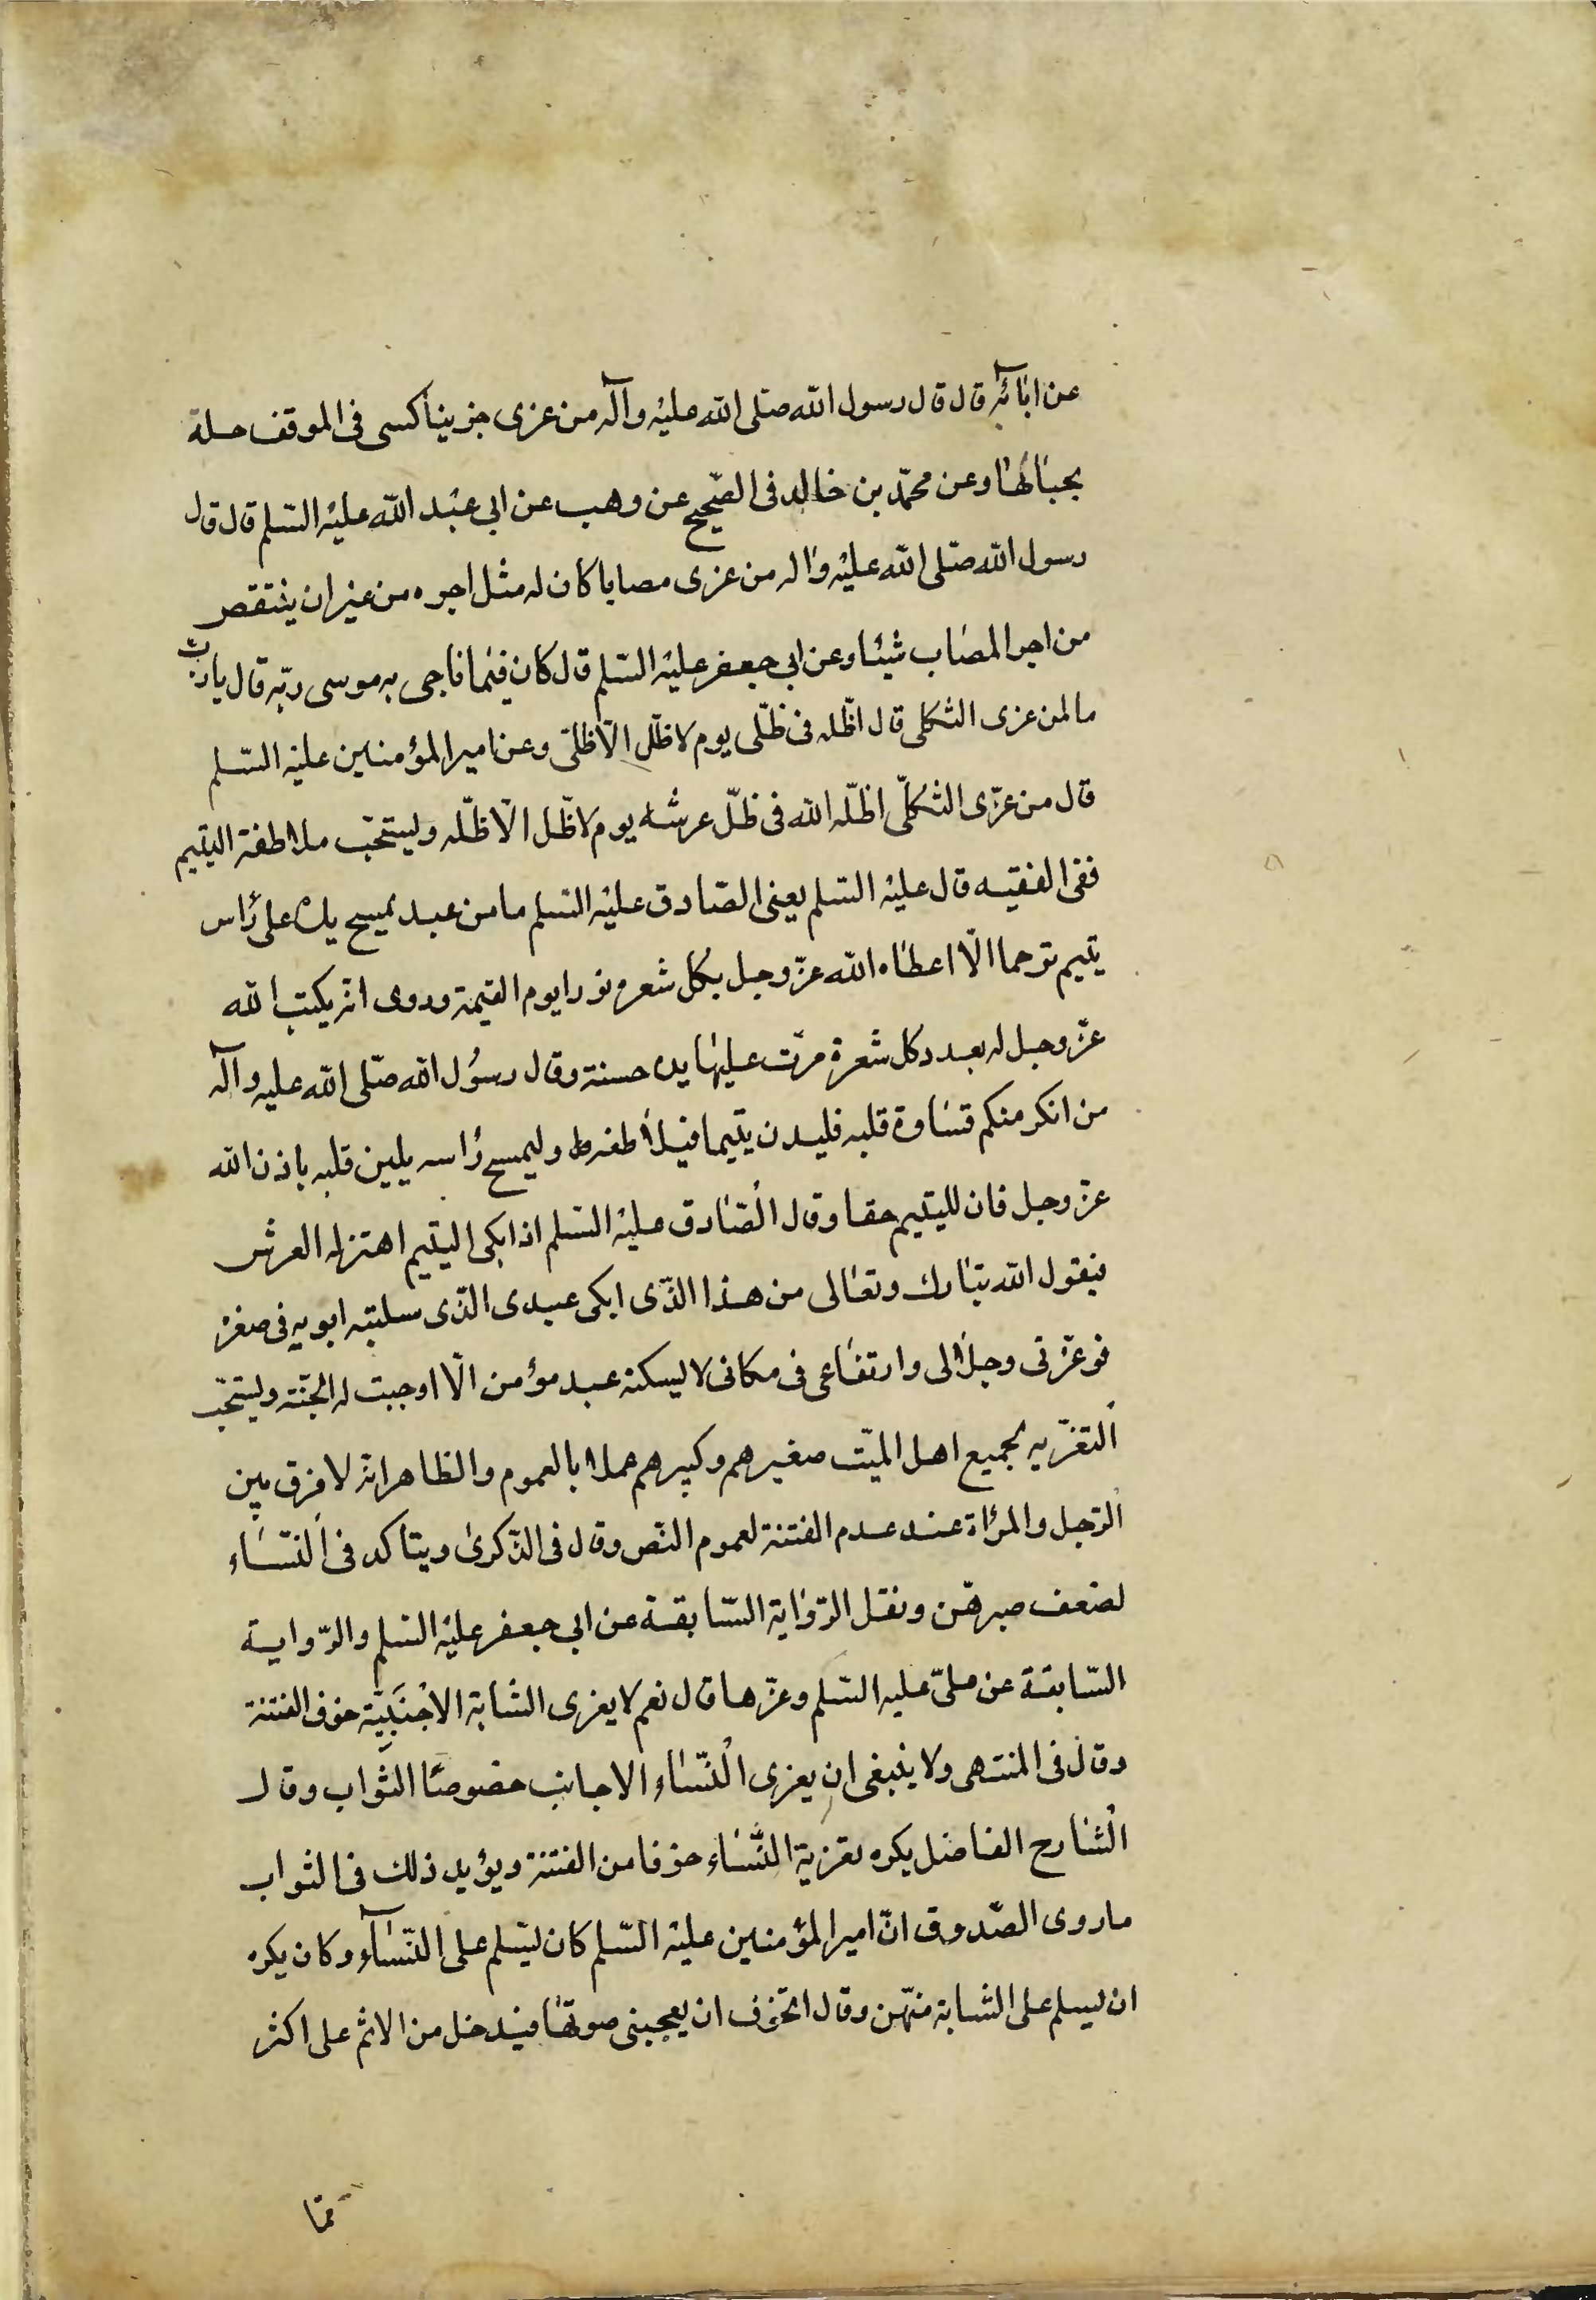 عن ابائه قال قال رسول الله صلى الله عليه وآله من عزى حزينا كسى فى الموقف حلة
يحبا بها وعن محمد بن خالد فى الصحيح عن وهب عن ابى عبد الله عليه السلم قال قال
رسول الله صلى الله عليه واله من عزى مصابا كان له مثل اجره من غير ان ينتقص
من اجر المصاب شيئا وعن ابى جعفر عليه السلم قال كان فيما ناجى به موسى ربه قال يا رب
ما لمن عزى الثكلى قال اظله فى ظلى يوم لا ظل الا ظلى وعن امير المؤمنين عليه السلم
قال من عزى الثكلى اظله الله فى ظل عرشه يوم لا ظل الا ظله ويستحب ملاطفة اليتيم
ففى الفقيه قال عليه السلم يعنى الصادق عليه السلم ما من عبد يمسح يده على رأس
يتيم ترحما الا اعطاه الله عز وجل بكل شعره نورا يوم القيمة وروى انه يكتب الله
عز وجل له بعدد كل شعرة مرت عليها يده حسنة وقال رسول الله صلى الله عليه وآله
من انكر منكم قساوة قلبه فليدن يتيما فيلاطفه وليمسح رأسه يلين قلبه باذن الله
عز وجل فان لليتيم حقا وقال الصادق عليه السلم اذا بكى اليتيم اهتز له العرش
فيقول الله تبارك وتعالى من هذا الذى ابكى عبدى الذى سلبته ابويه فى صغره
فوعزتى وجلالى وارتفاعى فى مكانى لا يسكنه عبد مؤمن الا اوجبت له الجنة ويستحب
التعزيه لجميع اهل الميت صغيرهم وكبيرهم عملا بالعموم والظاهر انه لا فرق بين
الرجل والمرأة عند عدم الفتنة لعموم النص وقال فى الذكرى ويتاكد فى النساء
لضعف صبرهن ونقل الرواية السابقة عن ابى جعفر عليه السلم والرواية
السابقة عن على عليه السلم وغيرها قال نعم لا يعزى الشابة الاجنبية خوف الفتنة
وقال فى المنتهى ولا ينبغى ان يعزى النساء الاجانب خصوصا الشواب وقال
الشارح الفاضل يكره تعزية النساء خوفا من الفتنة ويؤيد ذلك فى الشواب
ما روى الصدوق ان امير المؤمنين عليه السلم كان يسلم على النساء وكان يكره
ان يسلم على الشابة منهن وقال اتخوف ان يعجبنى صوتها فيدخل من الاثم على اكثر
مما